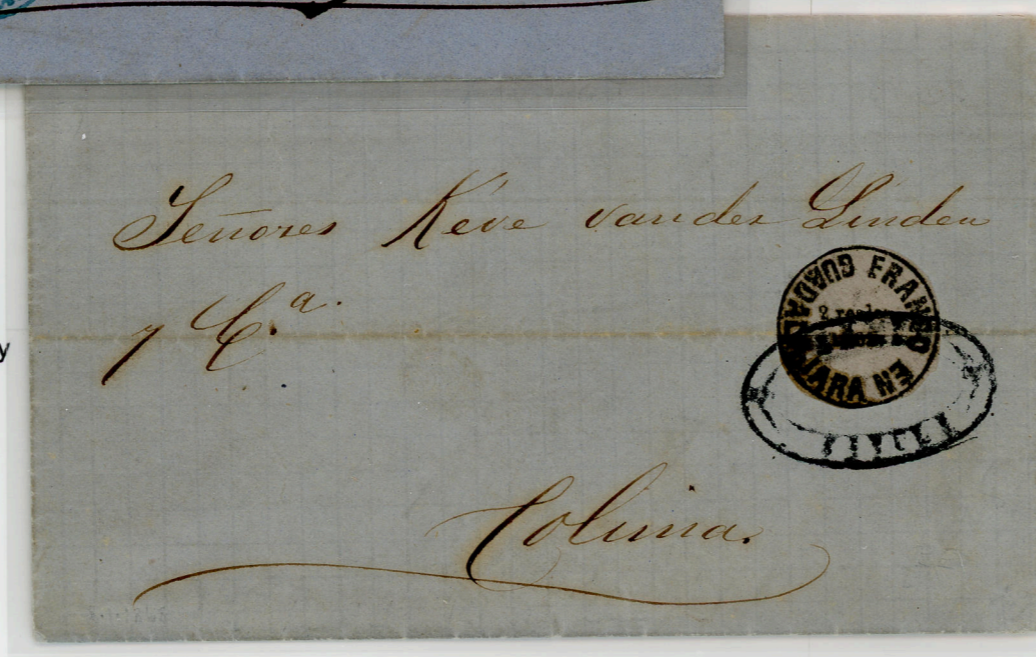 Señores Keve vander Linden
y C.a.
FRANCO EN GUADALAJARA
2 reales
Colima.
y